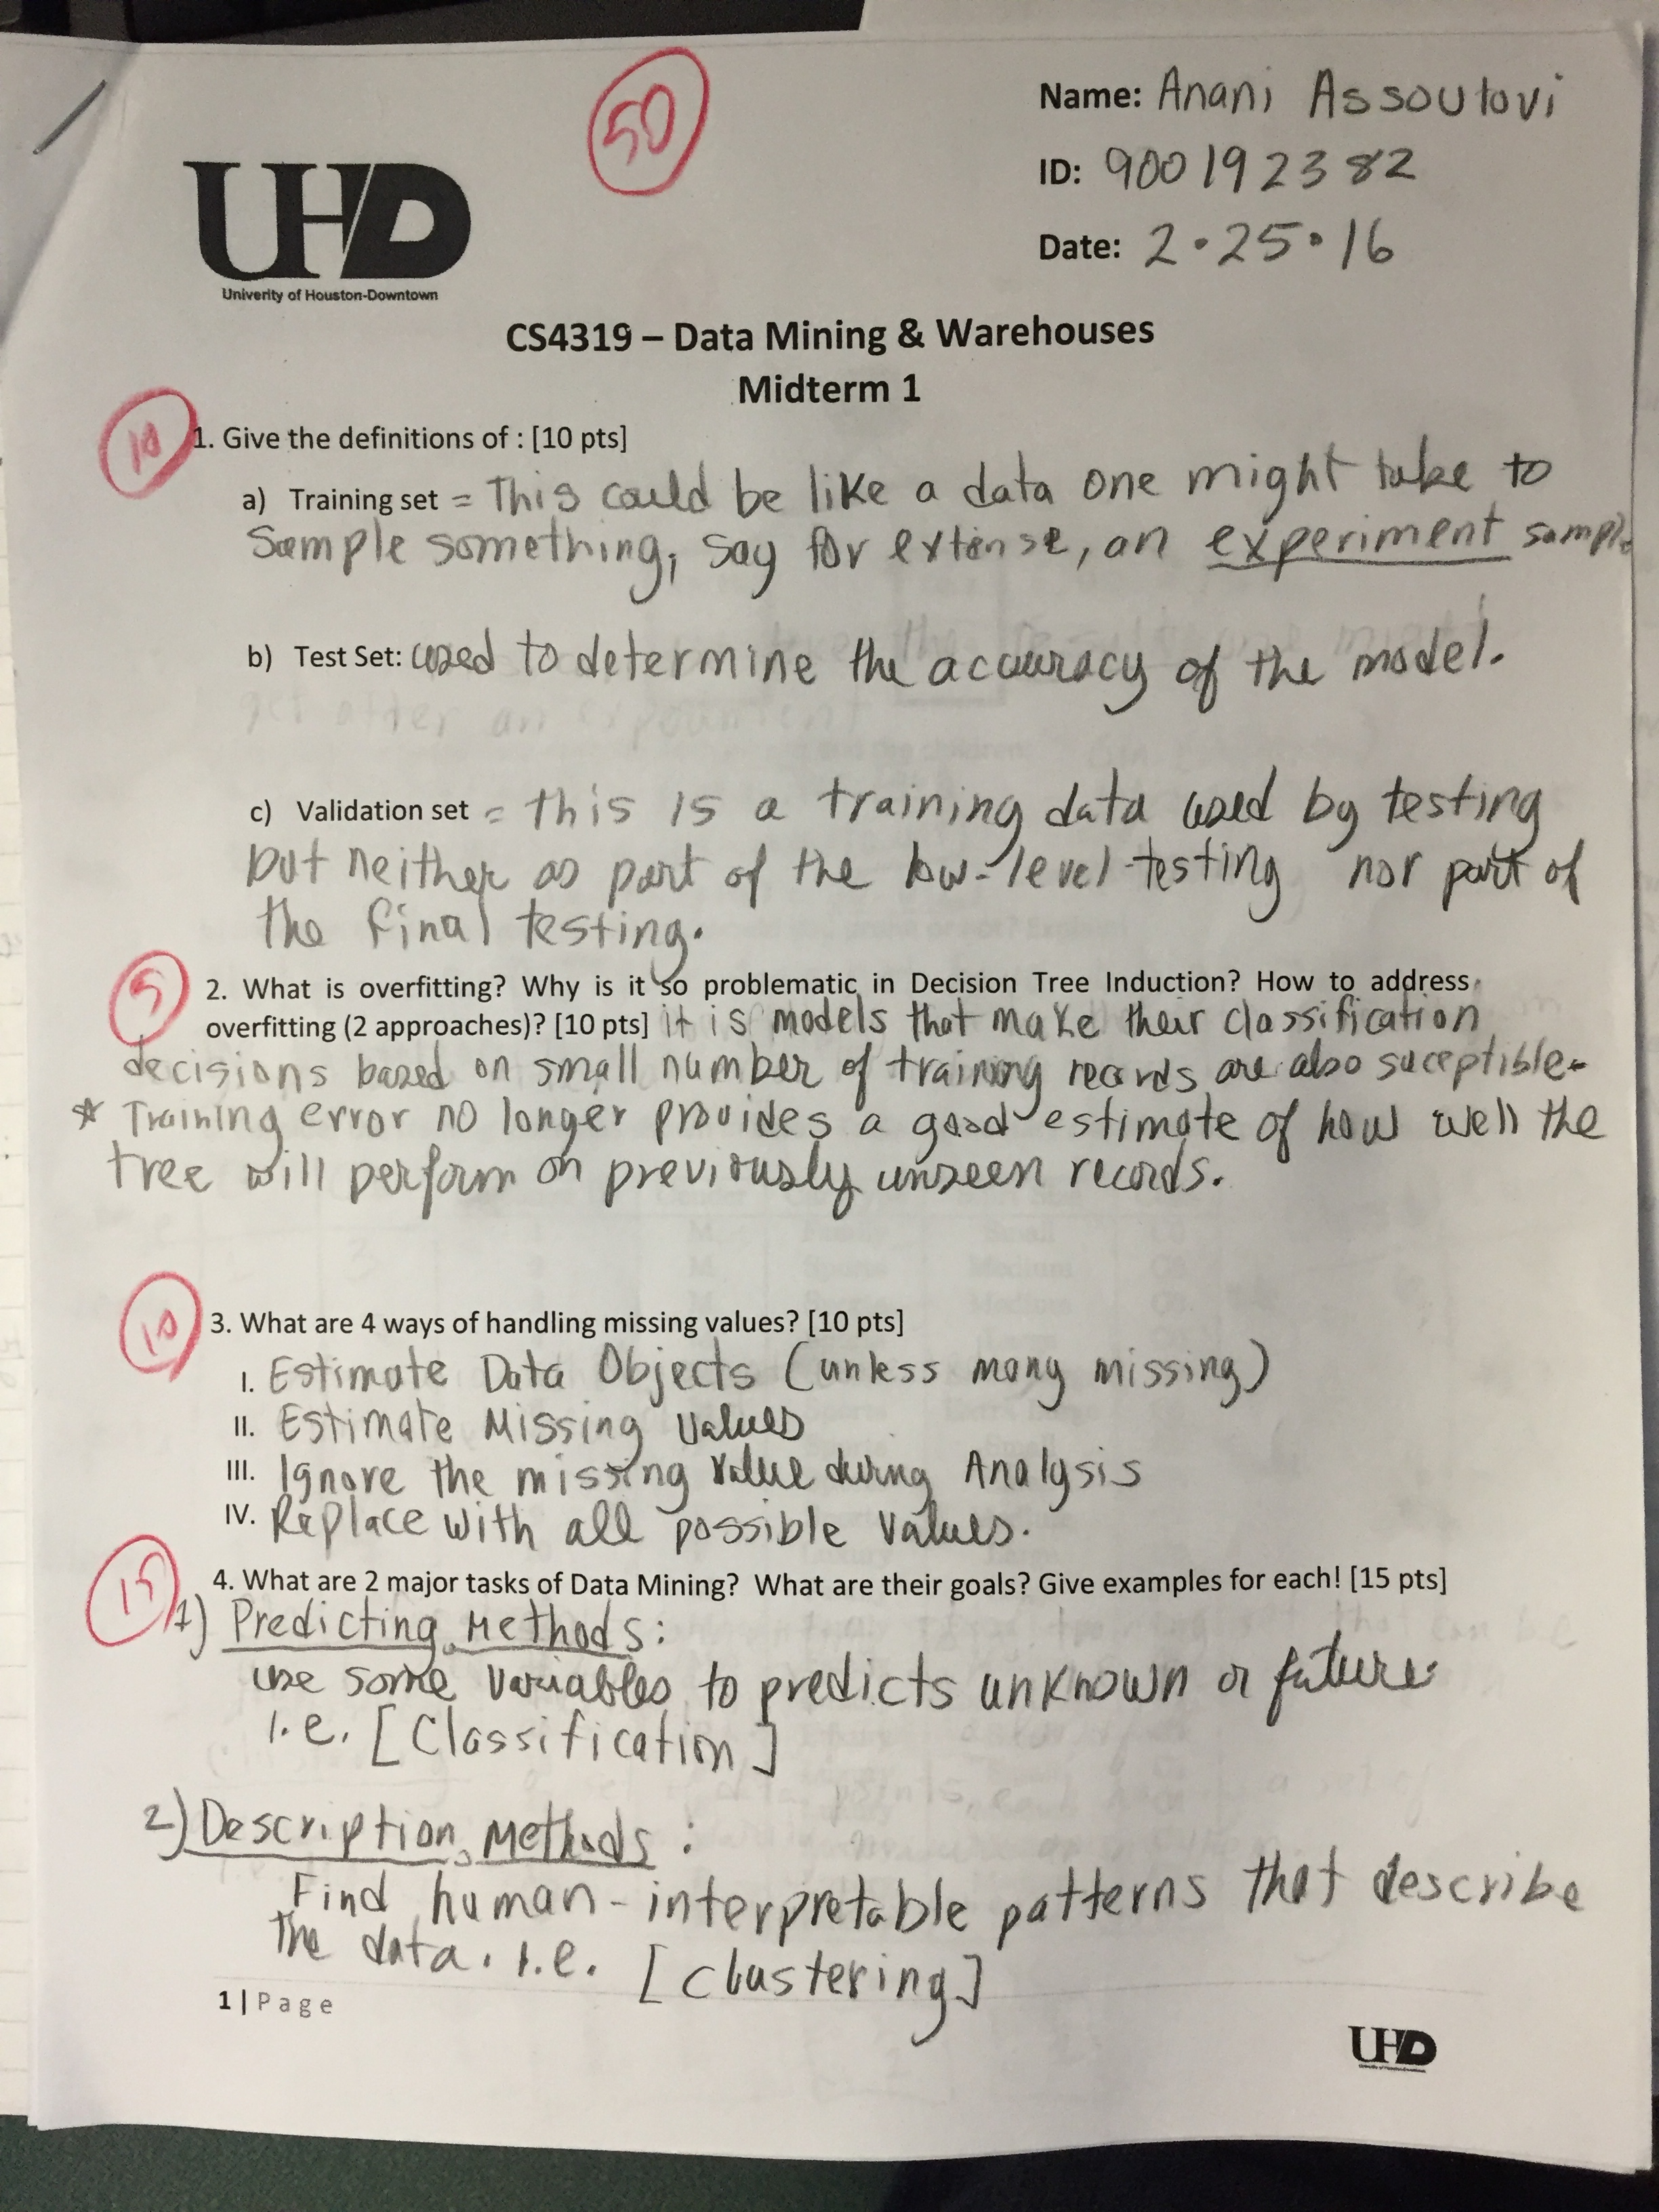 50
Name: Anani Assoutovi
ID: 900192382
Date: 2•25•16
UHD
Univerity of Houston-Downtown
CS4319 – Data Mining & Warehouses
Midterm 1
10
1. Give the definitions of : [10 pts]
a) Training set = This could be like a data one might take to
Sample something, say for extense, an experiment sample
b) Test Set: used to determine the accuracy of the model.
get after an experiment
c) Validation set = this is a training data used by testing
but neither as part of the low-level testing nor part of
the final testing.
5
2. What is overfitting? Why is it so problematic in Decision Tree Induction? How to address
overfitting (2 approaches)? [10 pts] it is models that make their classification
decisions based on small number of training records are also suceptible.
* Training error no longer provides a good estimate of how well the
tree will perform on previously unseen records.
10
3. What are 4 ways of handling missing values? [10 pts]
I. Estimate Data Objects (unless many missing)
II. Estimate Missing values
III. Ignore the missing value during Analysis
IV. Replace with all possible values.
15
4. What are 2 major tasks of Data Mining? What are their goals? Give examples for each! [15 pts]
1) Predicting Methods:
use some variables to predicts unknown or future
i.e. [Classification]
2) Description Methods:
Find human-interpretable patterns that describe
the data. i.e. [clustering]
1 | Page
UHD